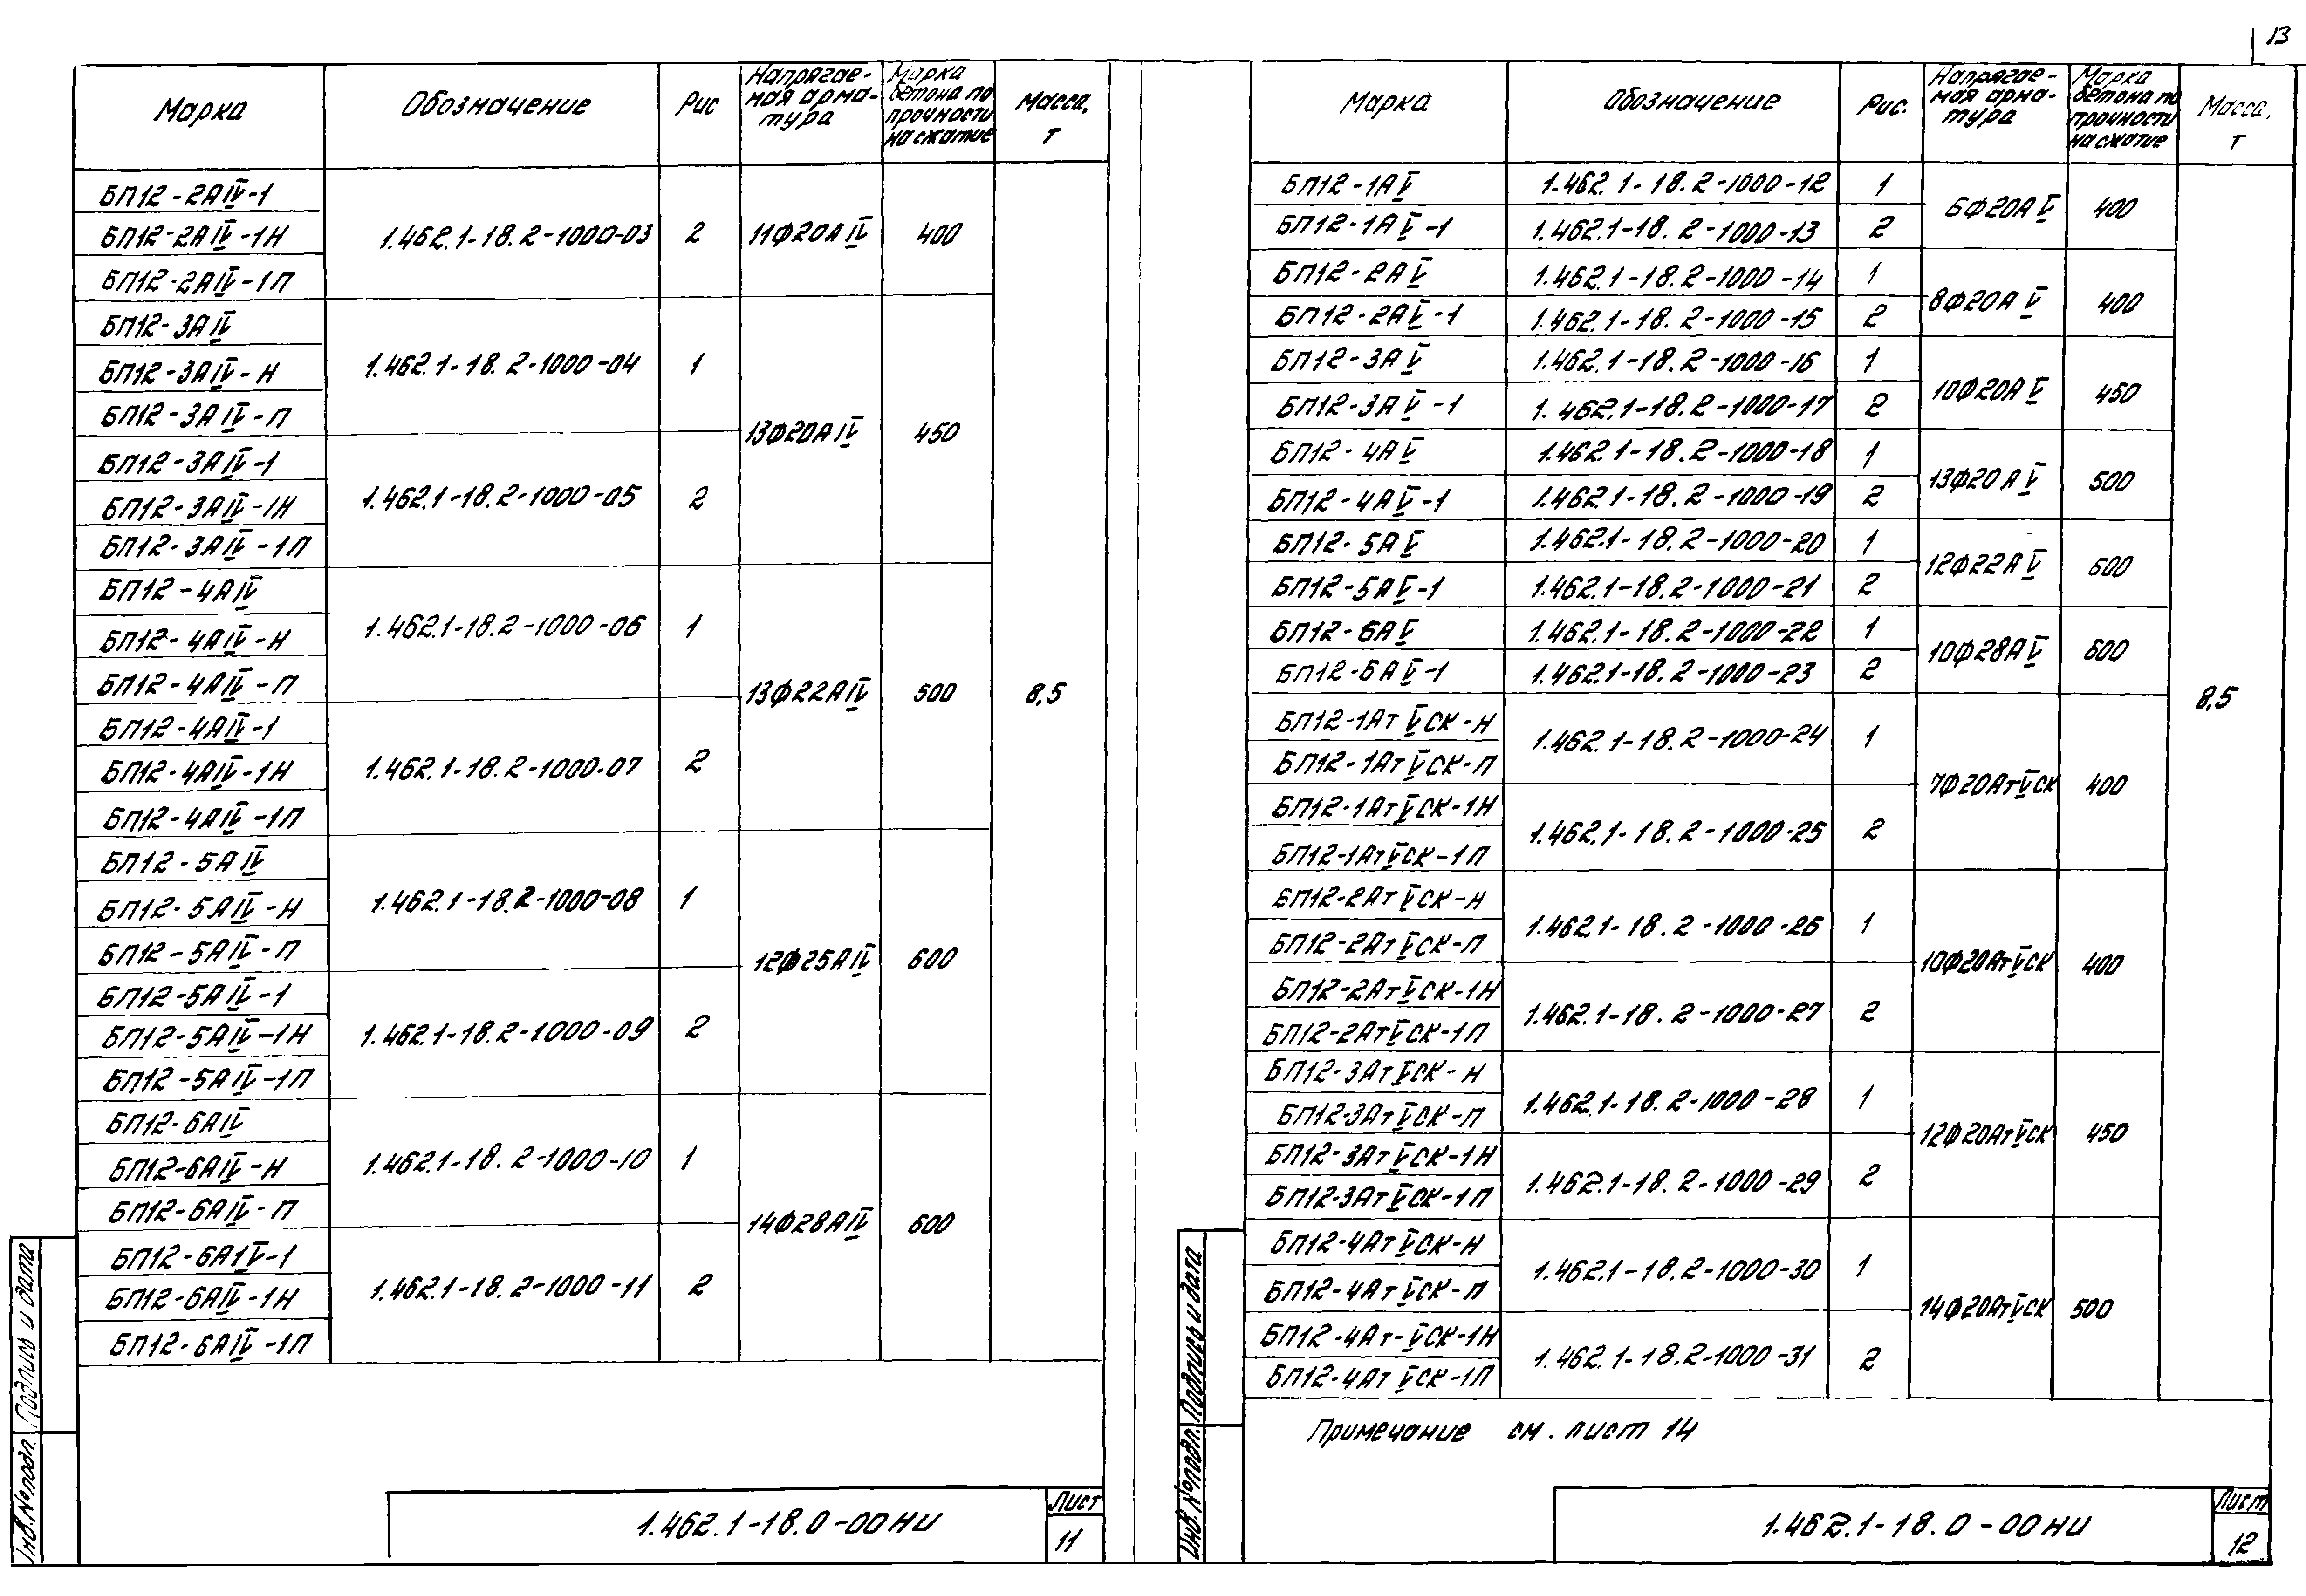 13
Марка Обозначение Рис Напрягае-мая арма-тура Марка бетона по прочности на сжатие Масса, т
БП12-2АIV-1
БП12-2АIV-1Н 1.462.1-18.2-1000-03 2 11Ф20АIV 400
БП12-2АIV-1П
БП12-3АIV
БП12-3АIV-Н 1.462.1-18.2-1000-04 1
БП12-3АIV-П
13Ф20АIV 450
БП12-3АIV-1
БП12-3АIV-1Н 1.462.1-18.2-1000-05 2
БП12-3АIV-1П
БП12-4АIV
БП12-4АIV-Н 1.462.1-18.2-1000-06 1
БП12-4АIV-П
13Ф22АIV 500 8,5
БП12-4АIV-1
БП12-4АIV-1Н 1.462.1-18.2-1000-07 2
БП12-4АIV-1П
БП12-5АIV
БП12-5АIV-Н 1.462.1-18.2-1000-08 1
БП12-5АIV-П
12Ф25АIV 600
БП12-5АIV-1
БП12-5АIV-1Н 1.462.1-18.2-1000-09 2
БП12-5АIV-1П
БП12-6АIV
БП12-6АIV-Н 1.462.1-18.2-1000-10 1
БП12-6АIV-П
14Ф28АIV 600
БП12-6АIV-1
БП12-6АIV-1Н 1.462.1-18.2-1000-11 2
БП12-6АIV-1П
Инв.№подл. Подпись и дата
1.462.1-18.0-00НИ
Лист
11
Марка Обозначение Рис. Напрягае-мая арма-тура Марка бетона по прочности на сжатие Масса, т
БП12-1АV 1.462.1-18.2-1000-12 1
6Ф20АV 400
БП12-1АV-1 1.462.1-18.2-1000-13 2
БП12-2АV 1.462.1-18.2-1000-14 1
8Ф20АV 400
БП12-2АV-1 1.462.1-18.2-1000-15 2
БП12-3АV 1.462.1-18.2-1000-16 1
10Ф20АV 450
БП12-3АV-1 1.462.1-18.2-1000-17 2
БП12-4АV 1.462.1-18.2-1000-18 1
13Ф20АV 500
БП12-4АV-1 1.462.1-18.2-1000-19 2
БП12-5АV 1.462.1-18.2-1000-20 1
12Ф22АV 600
БП12-5АV-1 1.462.1-18.2-1000-21 2
БП12-6АV 1.462.1-18.2-1000-22 1
10Ф28АV 600
БП12-6АV-1 1.462.1-18.2-1000-23 2
8,5
БП12-1АтVСК-Н 1.462.1-18.2-1000-24 1
БП12-1АтVСК-П
7Ф20АтVСК 400
БП12-1АтVСК-1Н 1.462.1-18.2-1000-25 2
БП12-1АтVСК-1П
БП12-2АтVСК-Н 1.462.1-18.2-1000-26 1
БП12-2АтVСК-П
10Ф20АтVСК 400
БП12-2АтVСК-1Н 1.462.1-18.2-1000-27 2
БП12-2АтVСК-1П
БП12-3АтVСК-Н 1.462.1-18.2-1000-28 1
БП12-3АтVСК-П
12Ф20АтVСК 450
БП12-3АтVСК-1Н 1.462.1-18.2-1000-29 2
БП12-3АтVСК-1П
БП12-4АтVСК-Н 1.462.1-18.2-1000-30 1
БП12-4АтVСК-П
14Ф20АтVСК 500
БП12-4Ат-VСК-1Н 1.462.1-18.2-1000-31 2
БП12-4АтVСК-1П
Примечание см. лист 14
Инв.№подл. Подпись и дата
1.462.1-18.0-00НИ
Лист
12